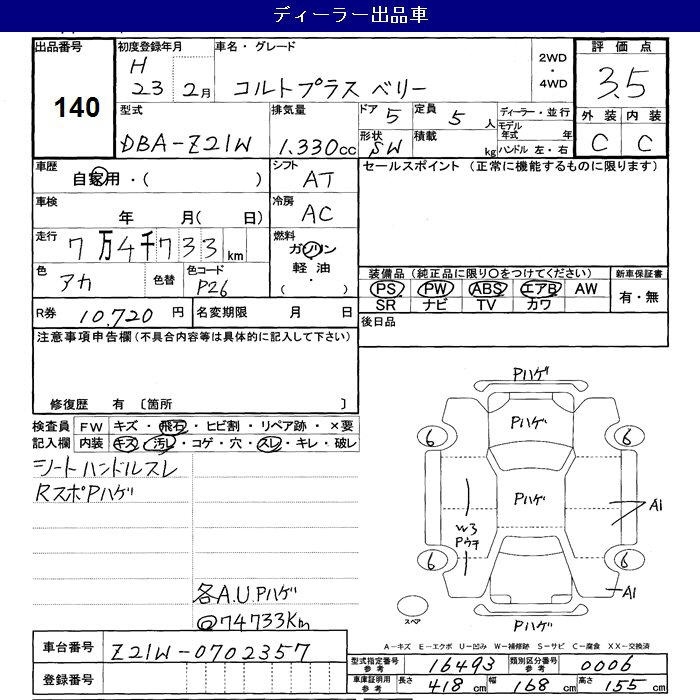 ディーラー出品車
出品番号
140
初度登録年月
H
23 2月
車名・グレード
コルトプラス ベリー
2WD
・
4WD
評価点
3.5
外装 内装
C C
型式
DBA-Z21W
排気量
1.330cc
ドア 5
定員 5 人
形状 SW
積載 kg
ディーラー・並行
モデル年式 年
ハンドル 左・右
車歴
自家用・( )
シフト
AT
セールスポイント (正常に機能するものに限ります)
車検
年 月( 日)
冷房
AC
走行
7万4千733km
燃料
ガソリン
軽油
( ・ )
色
アカ
色替
色コード
P26
装備品(純正品に限り○をつけてください)
新車保証書
PS PW ABS エアB AW
SR ナビ TV カワ
有・無
R券 10.720 円
名変期限 月 日
後日品
注意事項申告欄(不具合内容等は具体的に記入して下さい)
修復歴 有 〔箇所 〕
検査員 FW キズ・飛石・ヒビ割・リペア跡・×要
記入欄 内装 キズ・汚レ・コゲ・穴・スレ・キレ・破レ
シートハンドルスレ
RスポPハゲ
各A.U Pハゲ
@74733Km
Pハゲ
Pハゲ
6 6
Pハゲ
W3
Pウチ
A1
6 6
A1
スペア
Pハゲ
A-キズ E-エクボ U-凹み W-補修跡 S-サビ C-腐食 XX-交換済
車台番号 Z21W-0702357
登録番号
型式指定番号参考 16493
類別区分番号参考 0006
車庫証明用参考 長さ 418cm 幅 168cm 高さ 155cm